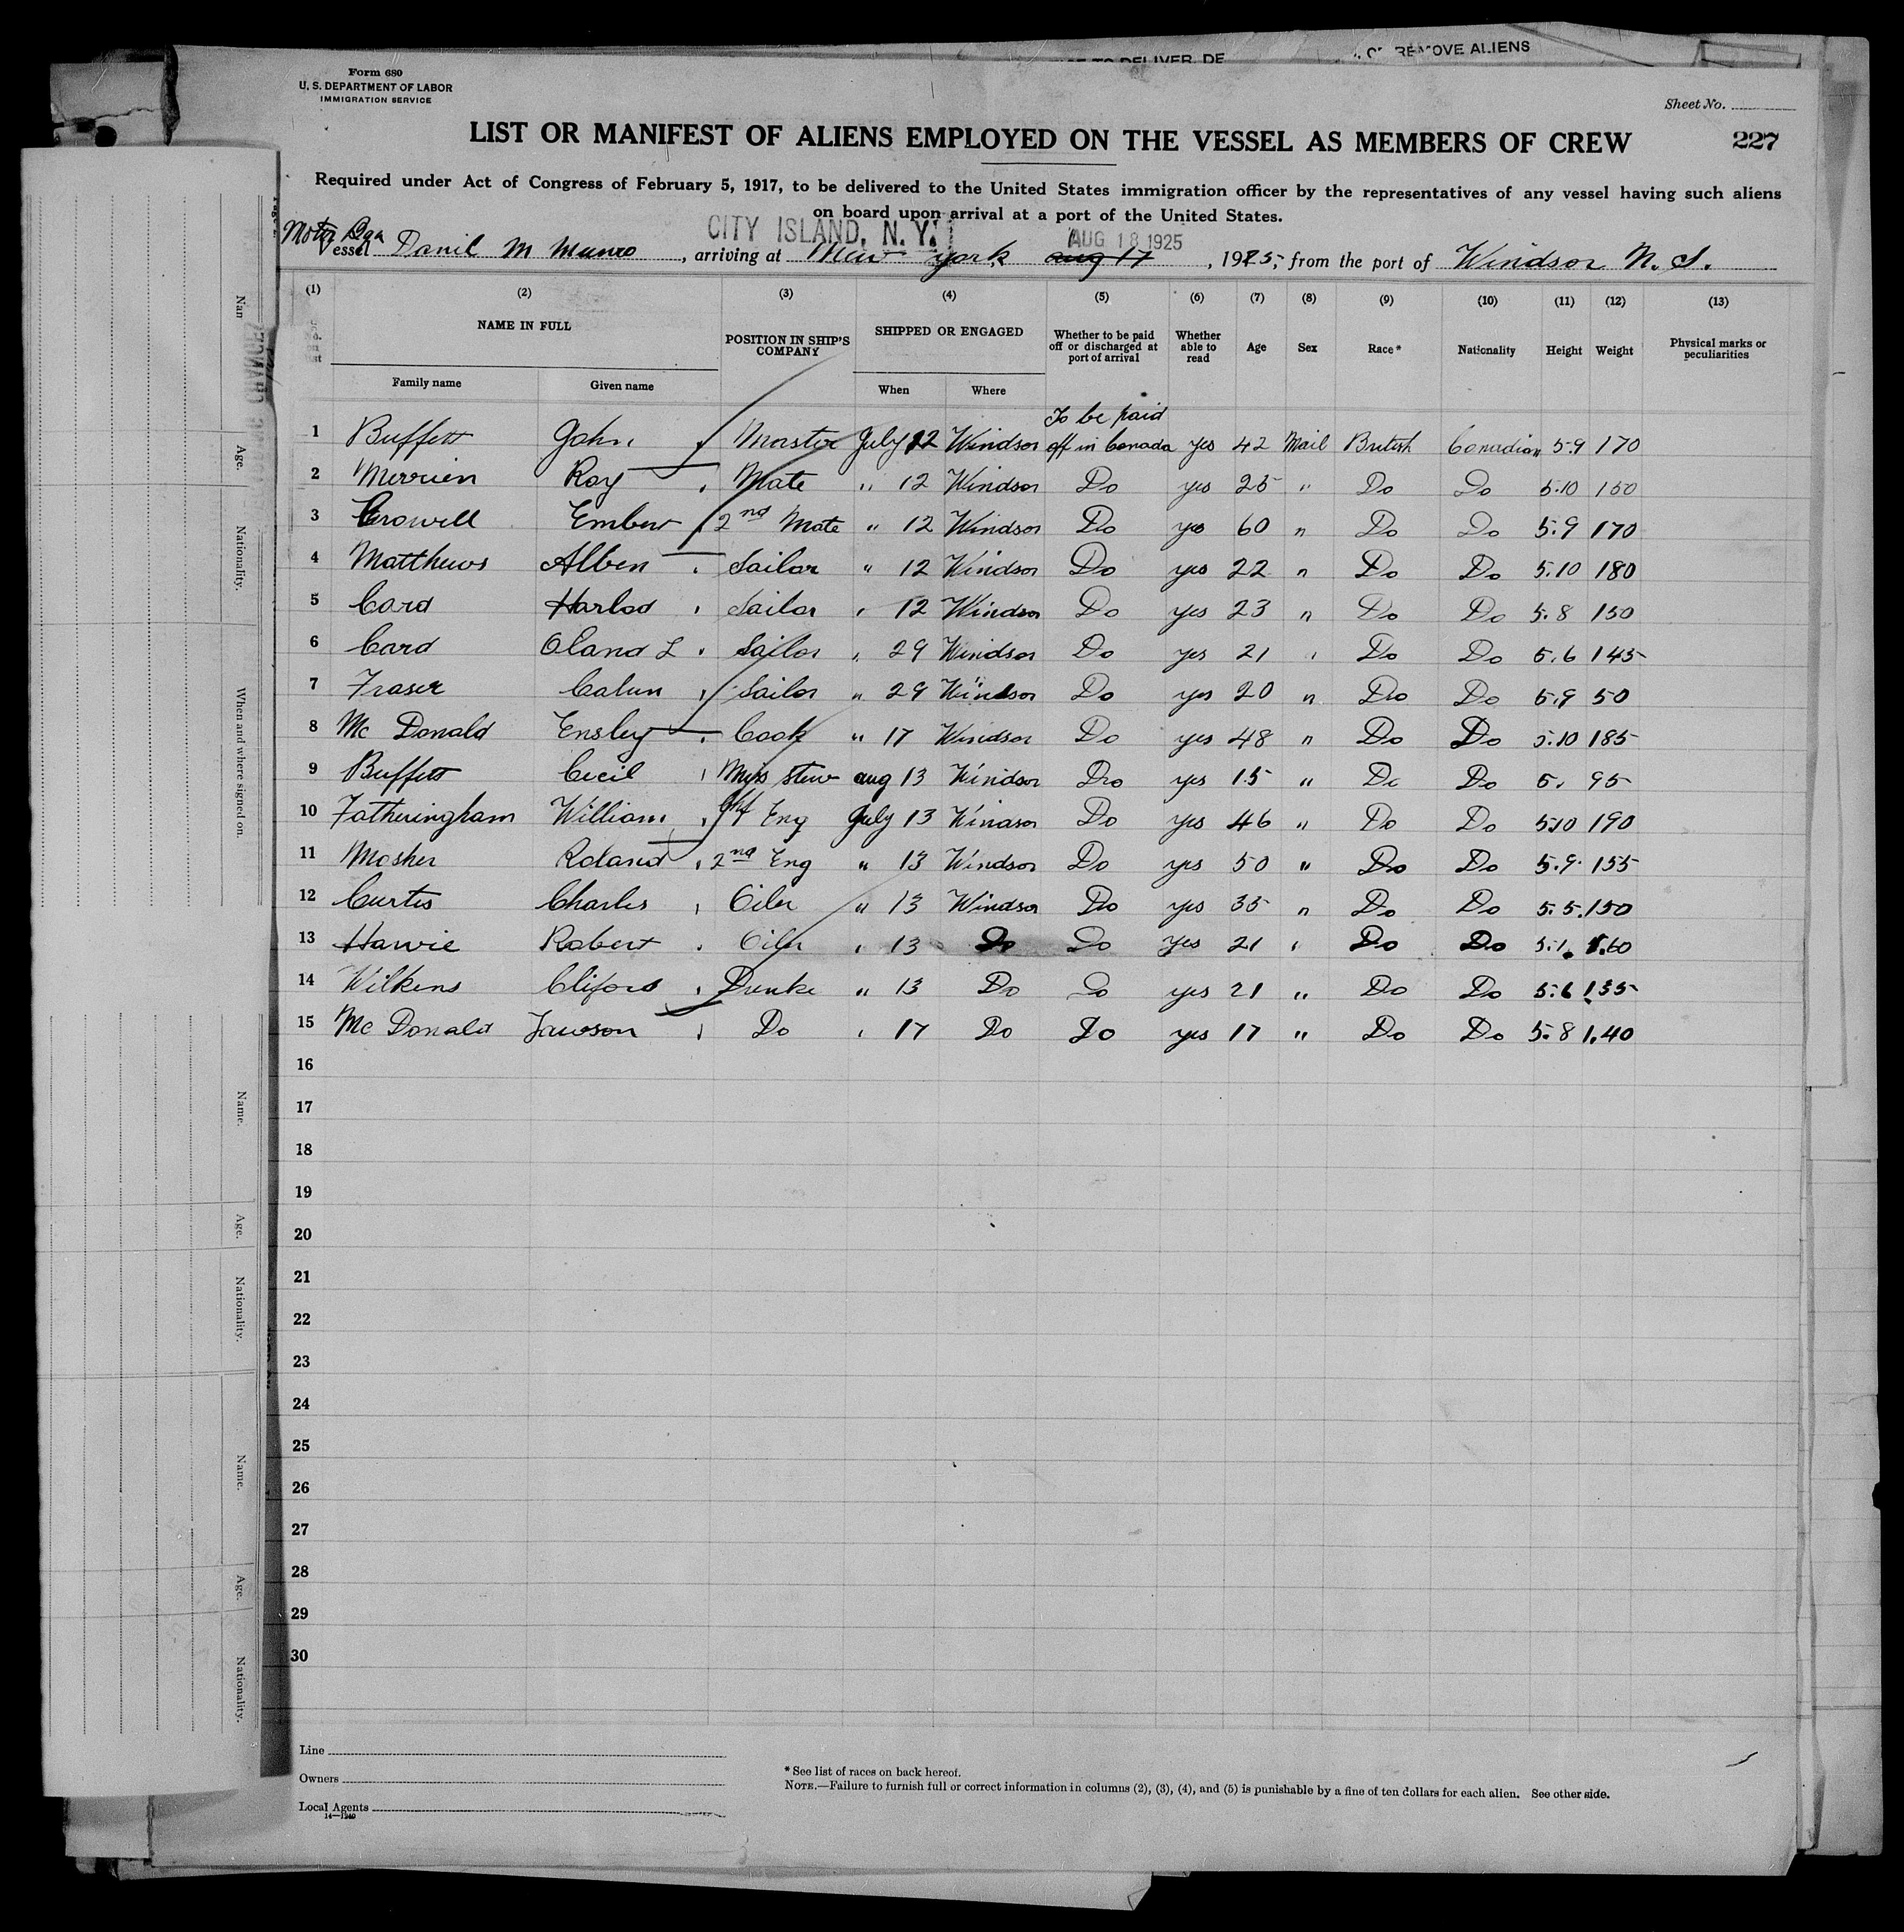 TO DELIVER, DE
REMOVE ALIENS
Form 680
U. S. DEPARTMENT OF LABOR
IMMIGRATION SERVICE
Sheet No.
LIST OR MANIFEST OF ALIENS EMPLOYED ON THE VESSEL AS MEMBERS OF CREW
227
Required under Act of Congress of February 5, 1917, to be delivered to the United States immigration officer by the representatives of any vessel having such aliens
on board upon arrival at a port of the United States.
CITY ISLAND, N.Y. AUG 18 1925
Vessel Danil M Munro, arriving at New York aug 17, 1925, from the port of Windsor N.S.
(1) (2) (3) (4) (5) (6) (7) (8) (9) (10) (11) (12) (13)
NAME IN FULL POSITION IN SHIP'S COMPANY SHIPPED OR ENGAGED Whether to be paid off or discharged at port of arrival Whether able to read Age Sex Race* Nationality Height Weight Physical marks or peculiarities
Family name Given name When Where
1 Buffett John Master July 12 Windsor To be paid off in Canada yes 42 Mail British Canadian 5.9 170
2 Merrien Roy Mate " 12 Windsor Do yes 25 " Do Do 5.10 150
3 Crowell Embert 2nd Mate " 12 Windsor Do yes 60 " Do Do 5.9 170
4 Matthews Alben Sailor " 12 Windsor Do yes 22 " Do Do 5.10 180
5 Card Harlod Sailor " 12 Windsor Do yes 23 " Do Do 5.8 150
6 Card Oland L Sailor " 29 Windsor Do yes 21 " Do Do 5.6 145
7 Fraser Calun Sailor " 29 Windsor Do yes 20 " Do Do 5.9 50
8 Mc Donald Ensley Cook " 17 Windsor Do yes 48 " Do Do 5.10 185
9 Buffett Cecil Mess stew aug 13 Windsor Do yes 15 " Do Do 5. 95
10 Fatheringham William Eng July 13 Windsor Do yes 46 " Do Do 5.10 190
11 Mosher Roland 2nd Eng " 13 Windsor Do yes 50 " Do Do 5.9 155
12 Curtis Charles Oiler " 13 Windsor Do yes 35 " Do Do 5.5 150
13 Harvie Robert Oiler " 13 Do Do yes 21 " Do Do 5.1 1.60
14 Wilkens Cliford Dunke " 13 Do Do yes 21 " Do Do 5.6 135
15 Mc Donald Lawson Do " 17 Do Do yes 17 " Do Do 5.8 1.40
16
17
18
19
20
21
22
23
24
25
26
27
28
29
30
Line
Owners
Local Agents
14—1240
* See list of races on back hereof.
NOTE.—Failure to furnish full or correct information in columns (2), (3), (4), and (5) is punishable by a fine of ten dollars for each alien. See other side.
Nan
Age.
Nationality.
When and where signed on.
Name.
Age.
Nationality.
Name.
Age.
Nationality.